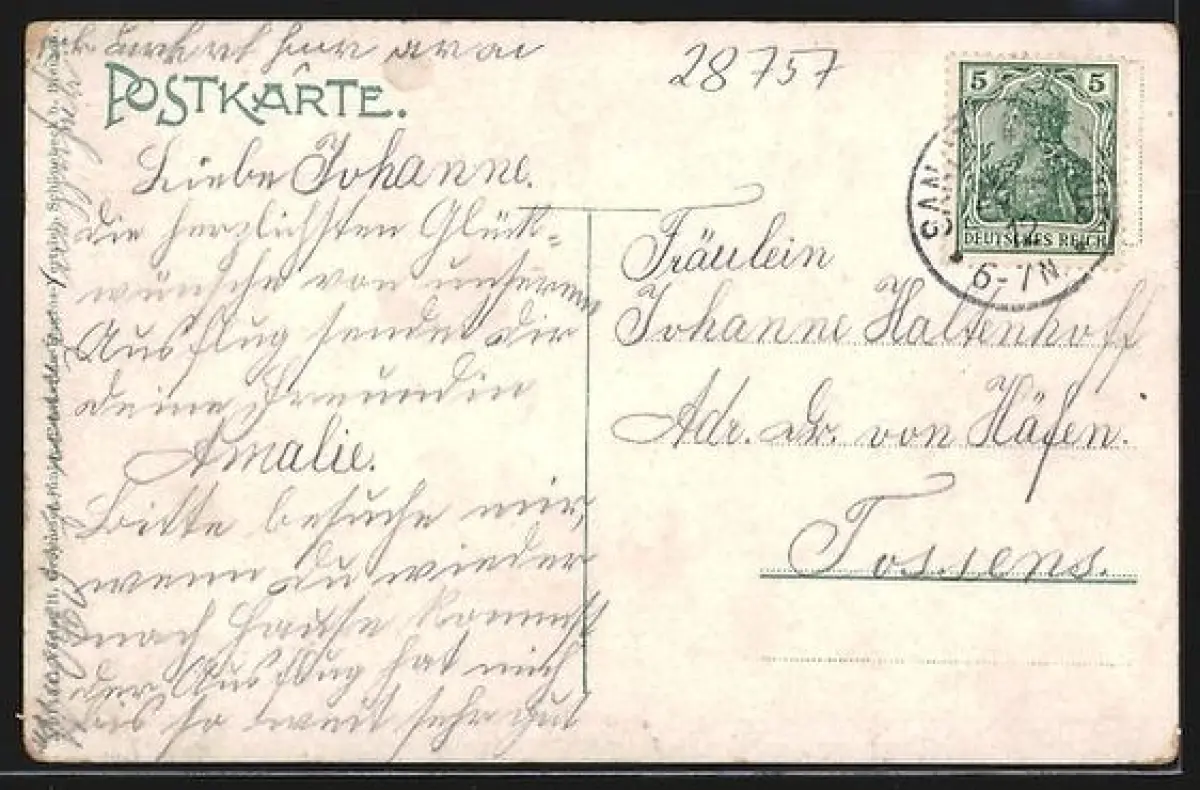 28757
POSTKARTE.
Liebe Johanne.
die herzlichsten Glück-
wünsche von unserem
Ausflug sendet dir
deine Freundin
Amalie.
Bitte besuche mir,
wenn du wieder
nach Hause kommst
der Ausflug hat mich
bis so weit sehr gut
5 5
DEUTSCHES REICH
6-7N
Fräulein
Johanne Haltenhoff
Adr. Dr. von Häfen.
Tossens.